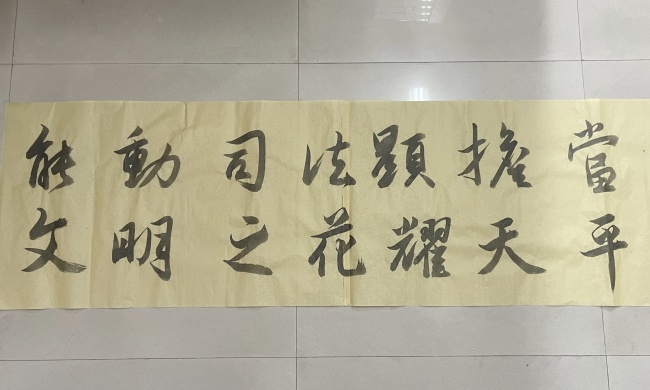 能動司法顯擔當
文明之花耀天平